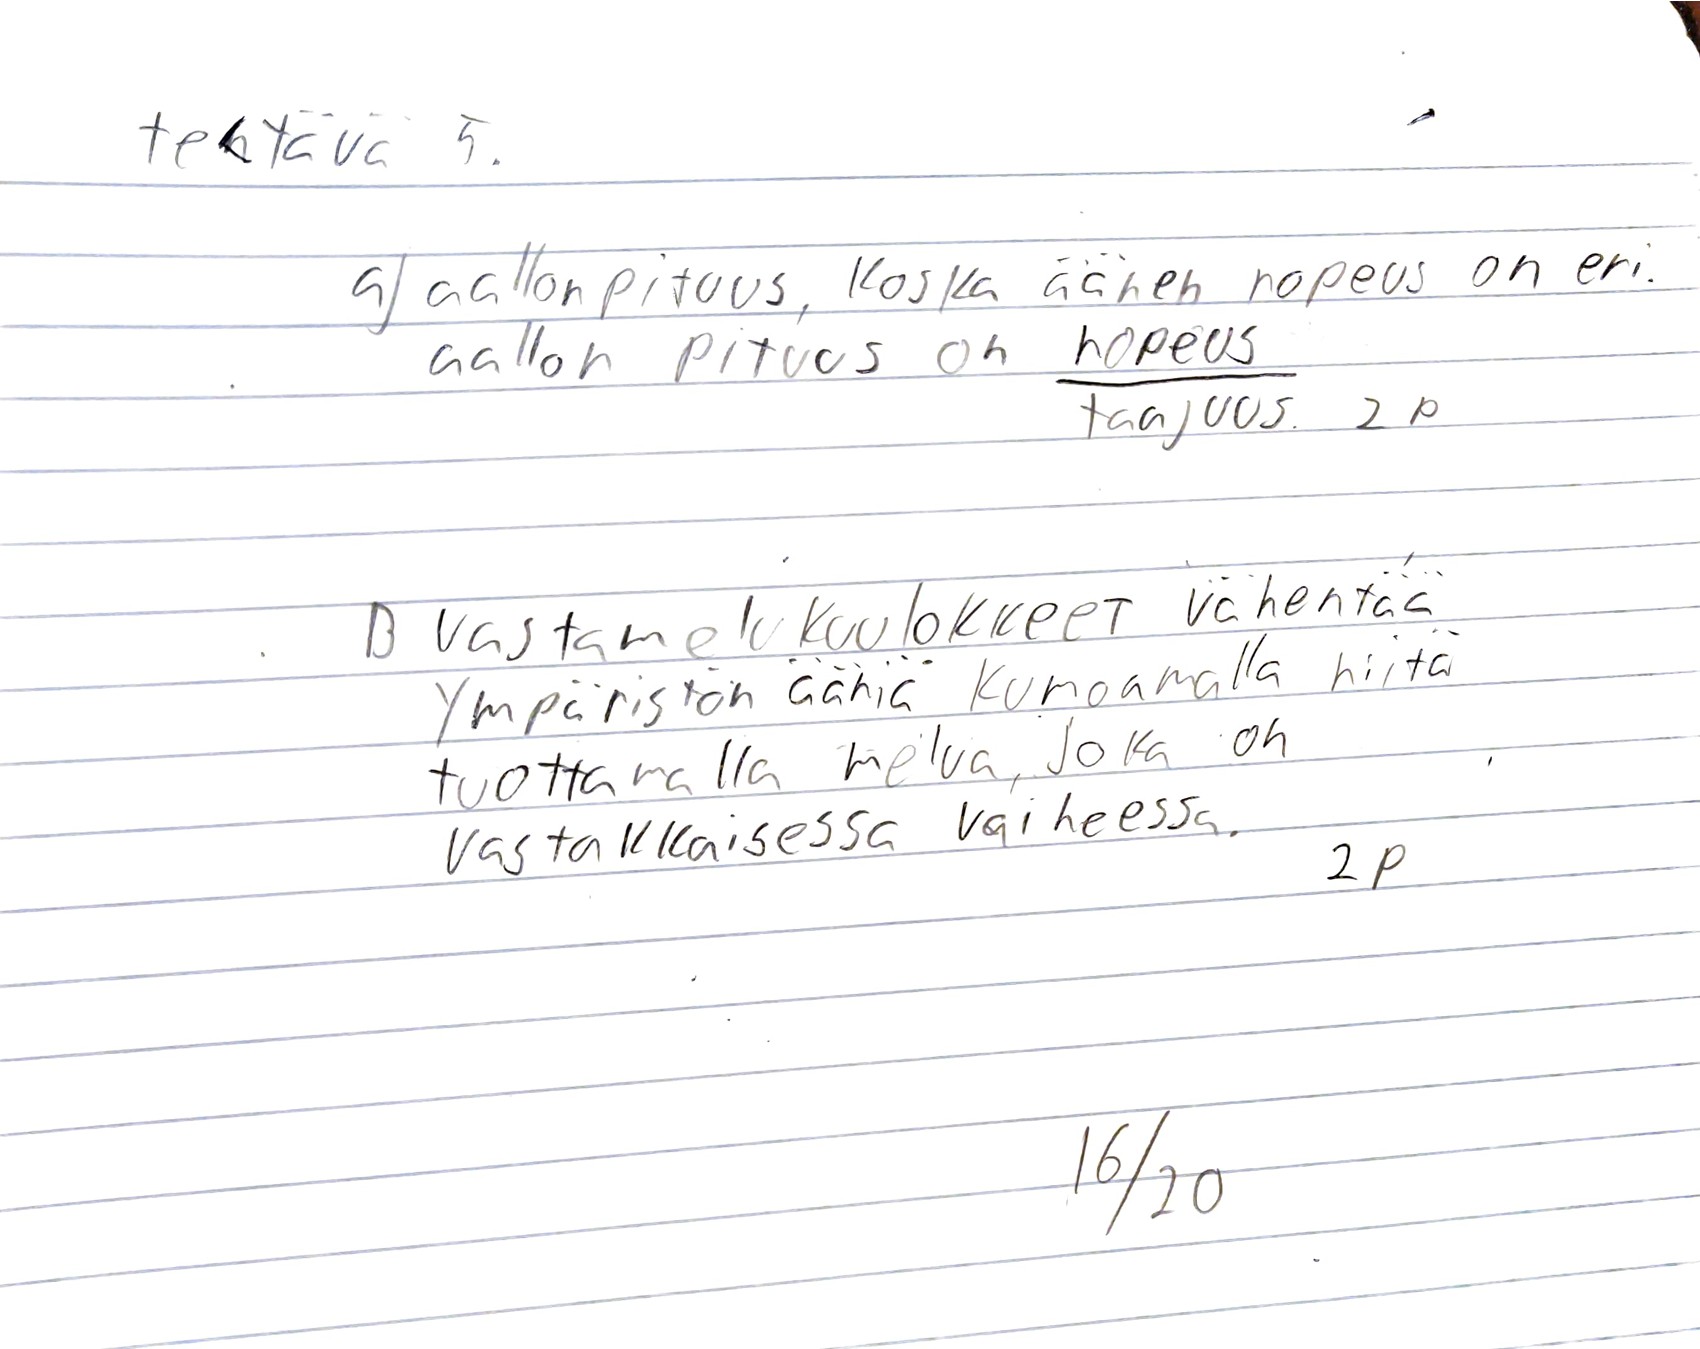 tehtävä 5.
a) aallonpituus, koska äänen nopeus on eri.
aallon pituus on nopeus
taajuus. 2 p
B Vastamelukuulokkeet vähentää
ympäristön ääniä kumoamalla niitä
tuottamalla melua, joka on
vastakkaisessa vaiheessa.
2 p
16/20